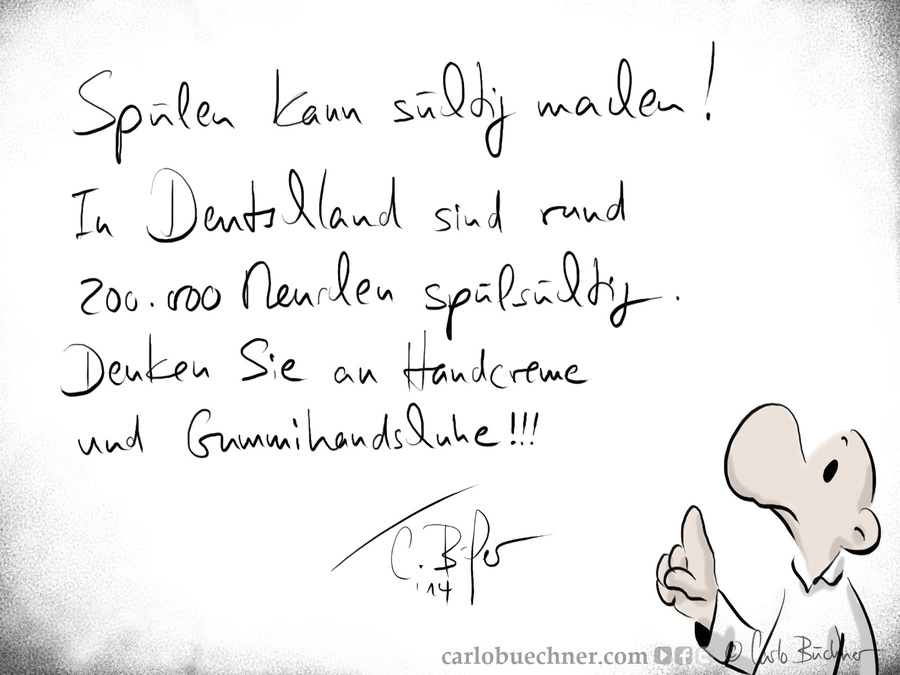 Spülen kann süchtig machen!
In Deutschland sind rund
200.000 Menschen spülsüchtig.
Denken Sie an Handcreme
und Gummihandschuhe!!!
C. Büchner
'14
carlobuechner.com
© Carlo Büchner